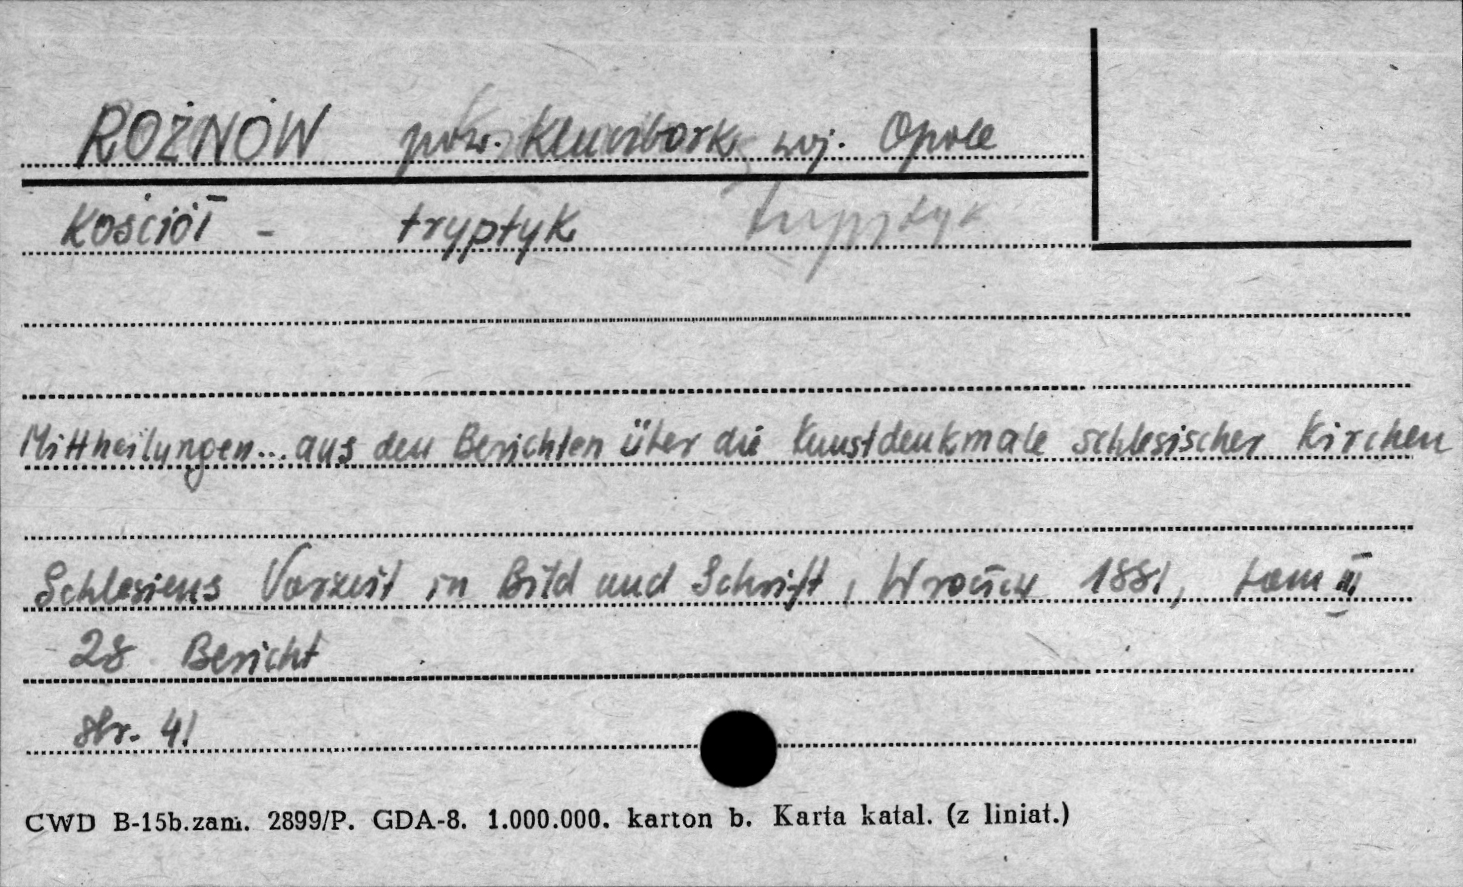 ROŻNÓW pow. Kluczbork woj. Opole
Kościół - tryptyk tryptyk
Mittheilungen... aus den Berichten über die Kunstdenkmale schlesischer Kirchen
Schlesiens Vorzeit in Bild und Schrift, Wrocław 1881, tom III
28 Bericht
str. 41
CWD B-15b.zam. 2899/P. GDA-8. 1.000.000. karton b. Karta katal. (z liniat.)